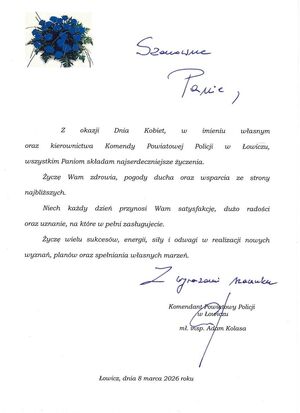 Szanowne
Panie,
Z okazji Dnia Kobiet, w imieniu własnym
oraz kierownictwa Komendy Powiatowej Policji w Łowiczu,
wszystkim Paniom składam najserdeczniejsze życzenia.
Życzę Wam zdrowia, pogody ducha oraz wsparcia ze strony
najbliższych.
Niech każdy dzień przynosi Wam satysfakcję, dużo radości
oraz uznanie, na które w pełni zasługujecie.
Życzę wielu sukcesów, energii, siły i odwagi w realizacji nowych
wyznań, planów oraz spełniania własnych marzeń.
Z wyrazami szacunku
Komendant Powiatowy Policji
w Łowiczu
mł. insp. Adam Kolasa
Łowicz, dnia 8 marca 2026 roku